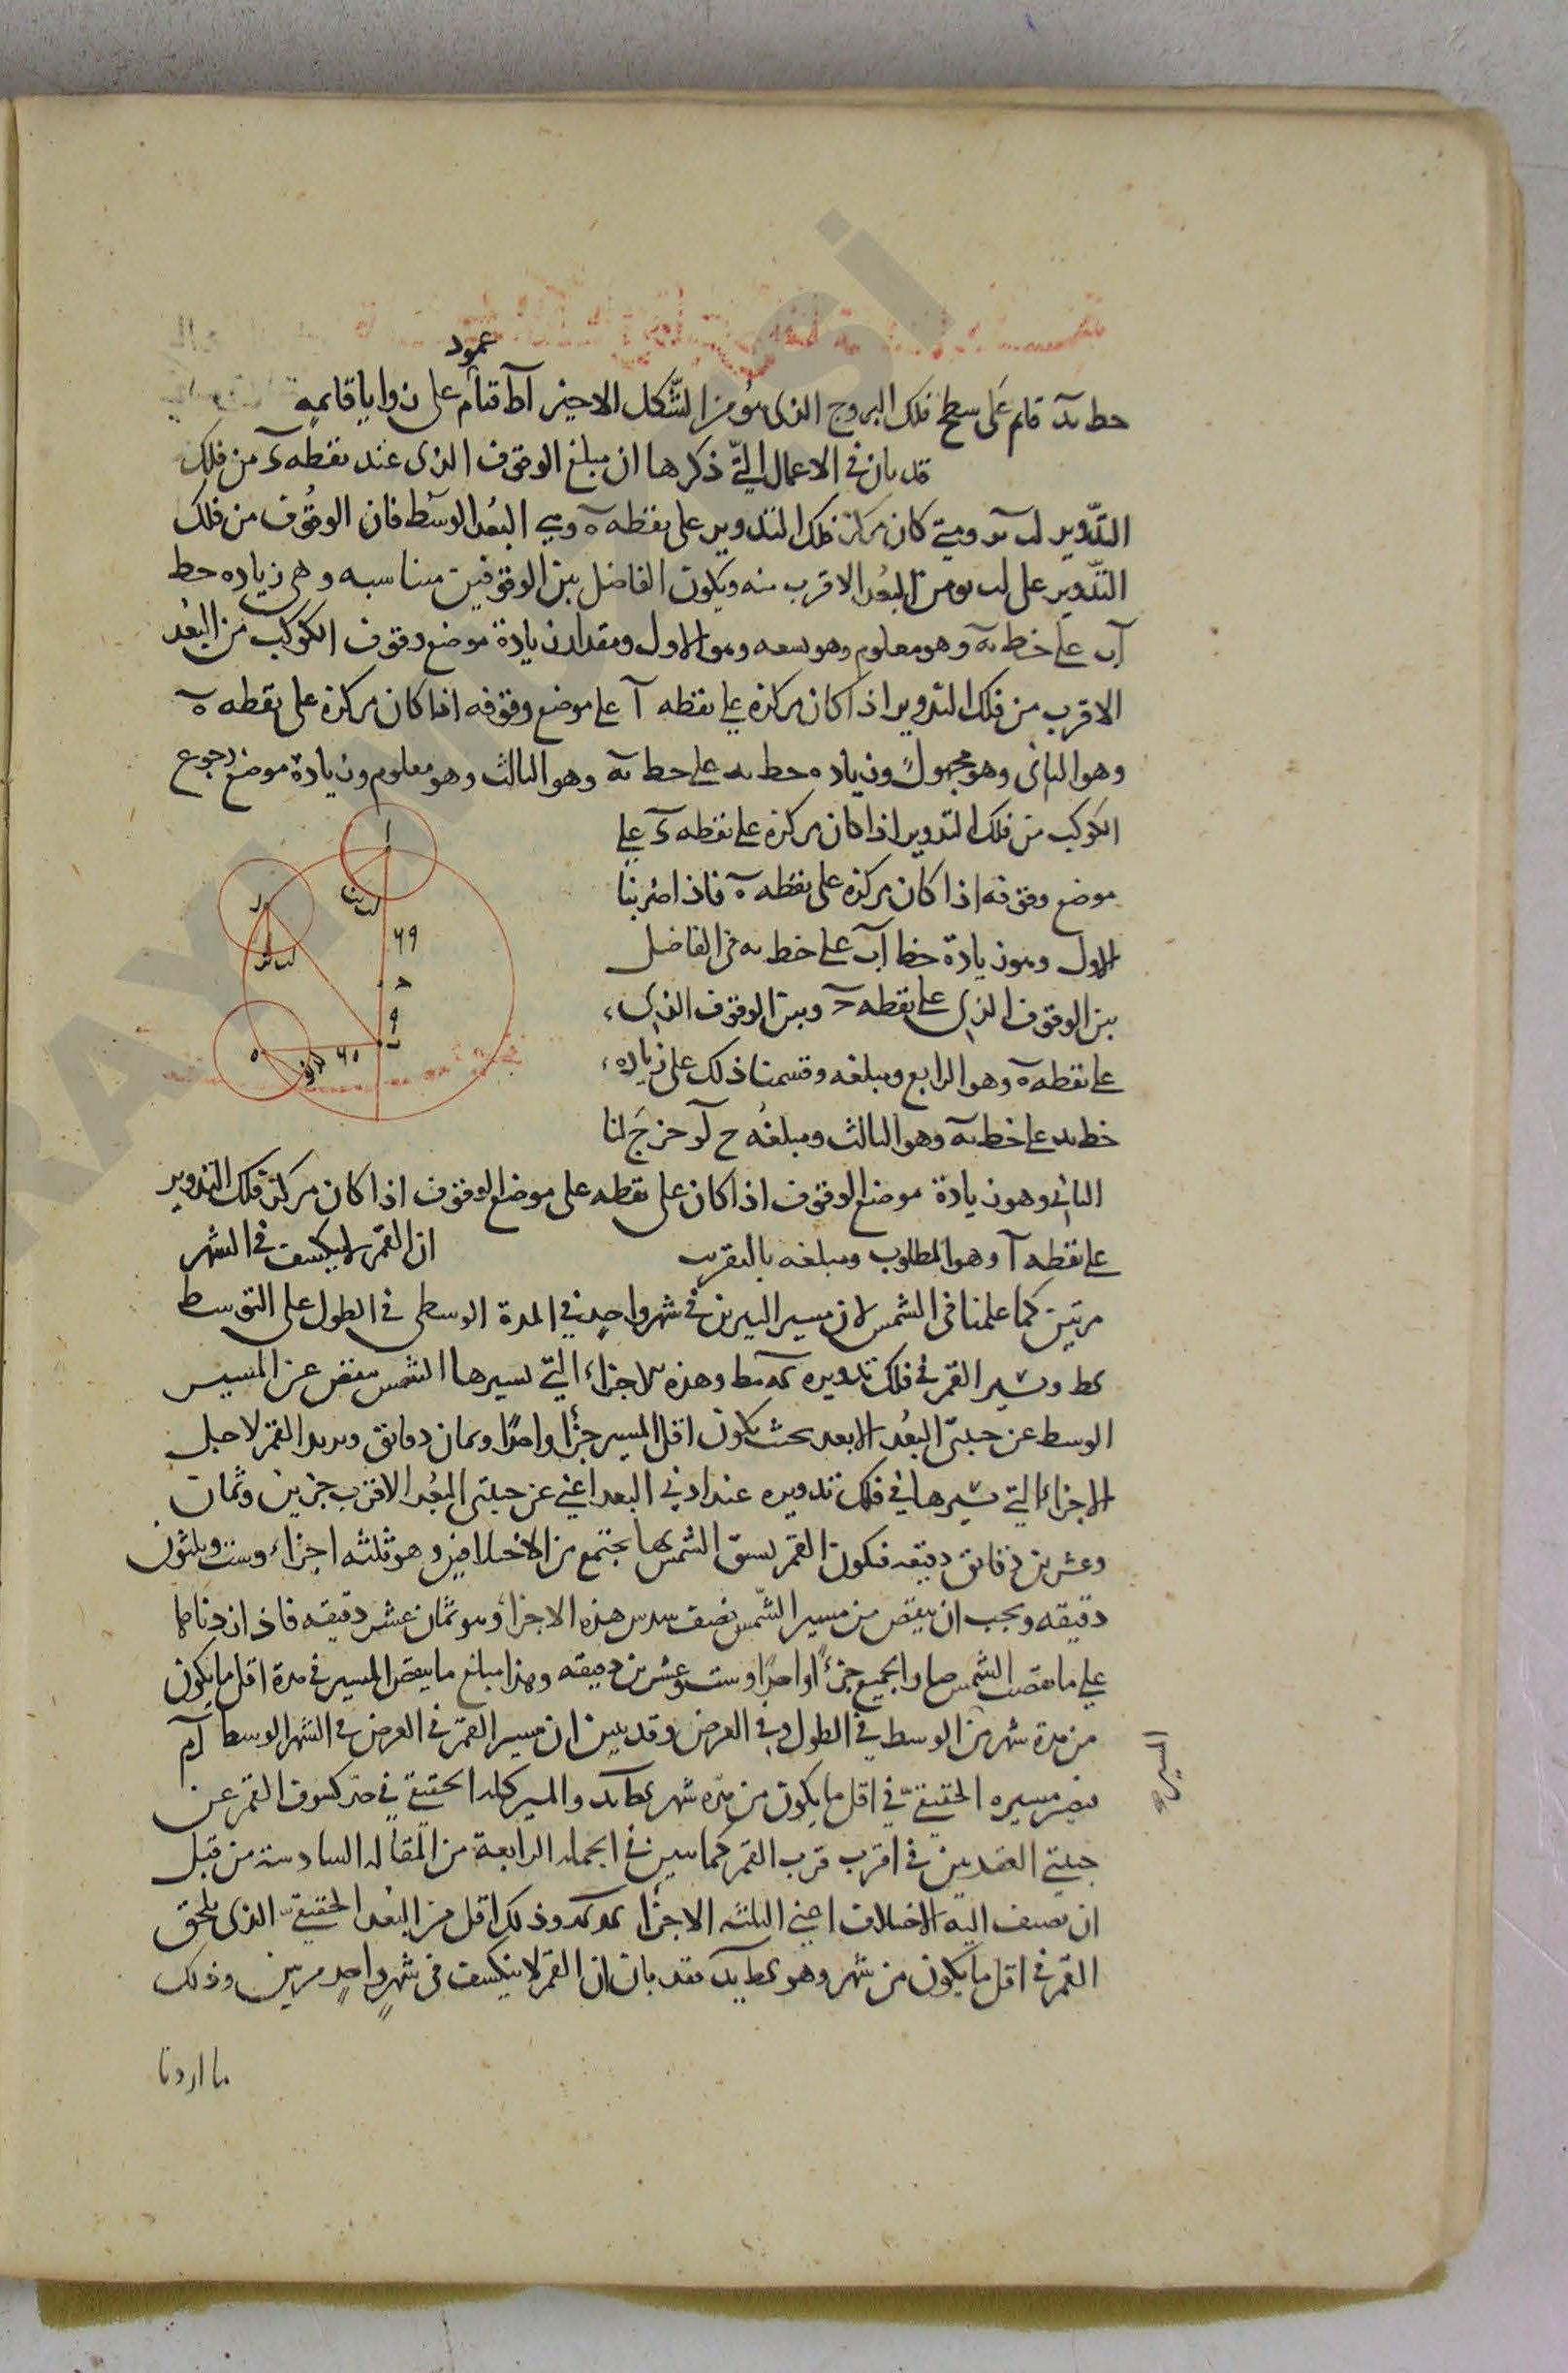 عمود
خط ىد قايم على سطح فلك البروج الذى هو من الشكل الاخير اط قيام على زوايا قايمه
قد بان فى الاعمال التى ذكرها ان مبلغ الوقوف الذى عند نقطه د من فلك
التدوير لب مد ومتى كان مركز فلك التدوير على نقطه ه وهى البعد الاوسط فان الوقوف من فلك
التدوير على لب نو من البعد الاقرب منه ويكون الفاضل بين الوقوفين مناسبه وهى زياده خط
اب على خط ىه وهو معلوم وهو تسعه وهو الاول ومقدار زيادة موضع وقوف الكوكب من البعد
الاقرب من فلك التدوير اذا كان مركزه على نقطه ا على موضع وقوفه اذا كان مركزه على نقطه ه
وهو الثانى وهو مجهول وزياده خط ىد على خط ىه وهو الثالث وهو معلوم وزيادة موضع رجوع
الكوكب من فلك التدوير اذا كان مركزه على نقطه د على
موضع وقوفه اذا كان مركزه على نقطه ه فاذا ضربنا
الاول وهو زيادة خط اب على خط ىه فى الفاضل
بين الوقوف الذى على نقطه د وبين الوقوف الذى
على نقطه ه وهو الرابع ومبلغه وقسمنا ذلك على زياده
خط ىد على خط ىه وهو الثالث ومبلغه ح لو خرج لنا
الثانى وهو زيادة موضع الوقوف اذا كان على نقطه على موضع الوقوف اذا كان مركز فلك التدوير
على نقطه ا وهو المطلوب ومبلغه بالتقريب ان القمر لا ينكسف فى الشهر
مرتين كما علمنا فى الشمس لان مسير النيرين فى شهر واحد فى المدة الوسطى فى الطول على التوسط
كط ومسير القمر فى فلك تدويره كه مط وهذه الاجزاء التى تسيرها الشمس ينقص عن المسير
الوسط عن جنبتى البعد الابعد بحيث يكون اقل المسير جزًا واحدًا وثمان دقايق ويزيد القمر لاجل
الاجزاء التى يسيرها فى فلك تدويره عند ادنى البعد اعنى عن جنبتى البعد الاقرب جزين وثمان
وعشرين دقايق دقيقه فيكون القمر يسبق الشمس بما يجتمع من الاختلافين وهو ثلثه اجزاء وست وثلثون
دقيقه ويجب ان ينقص من مسير الشمس نصف سدس هذه الاجزاء وهو ثمان عشر دقيقه فاذا زدناها
على ما نقصت الشمس صار الجميع جزءًا واحدًا وست وعشرين دقيقه وهذا مبلغ ما ينقص المسير فى مدة اقل ما يكون
من مدة شهر من الوسط فى الطول وفى العرض وقد يبين ان مسير القمر فى العرض فى الشهر الوسط ام
فيصير مسيره الحقيقى فى اقل ما يكون من مده شهر كط ىد والمسير كله الحقيقى فى حد كسوف القمر عن
جنبتى العقدتين فى اقرب قرب القمر كما تبين فى الجمله الرابعة من المقاله السادسة من قبل
ان نضيف اليه الاختلاف اعنى الثلثه الاجزا كه كد وذلك اقل من البعد الحقيقى الذى يلحق
القمر فى اقل ما يكون من شهر وهو كط ىد فقد بان ان القمر لا ينكسف فى شهر واحد مرتين وذلك
ما اردنا